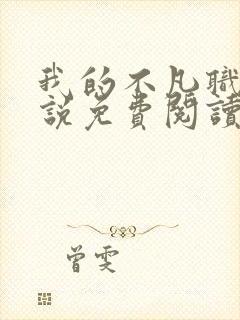 我的不凡職
說免費閱讀
曾雯